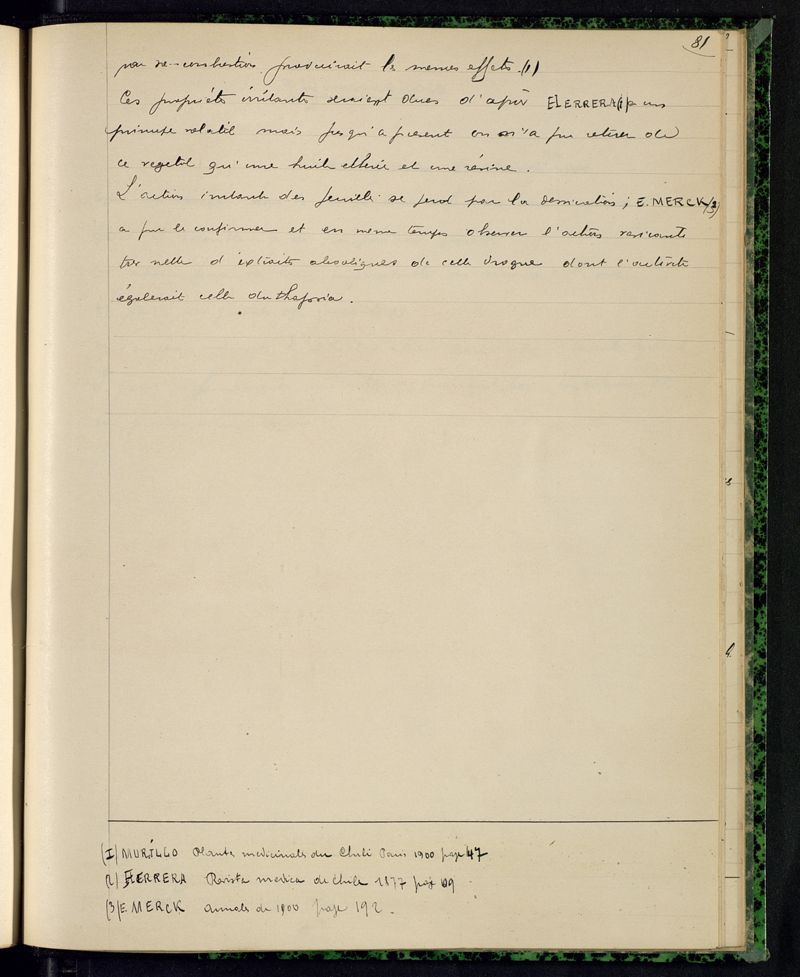 81
par sa combustion produirait les memes effets (1)
Ces propriétés irritantes seraient dues d'après HERRERA (2) a un
principe volatil mais jusqu'a present on n'a pu retirer de
ce vegetal qu'une huile etherée et une résine.
L'action irritante des feuilles se perd par la dessication; E. MERCK (3)
a pu le confirmer et en meme temps observer l'action vesicante
tres nette d'extraits alcooliques de cette drogue dont l'activité
égalerait celle du thapsia.
(I) MURILLO Plantes medicinales du Chili Paris 1900 page 47
(2) HERRERA Revista medica de Chile 1877 pag
(3) E. MERCK annales de 1900 page 192.